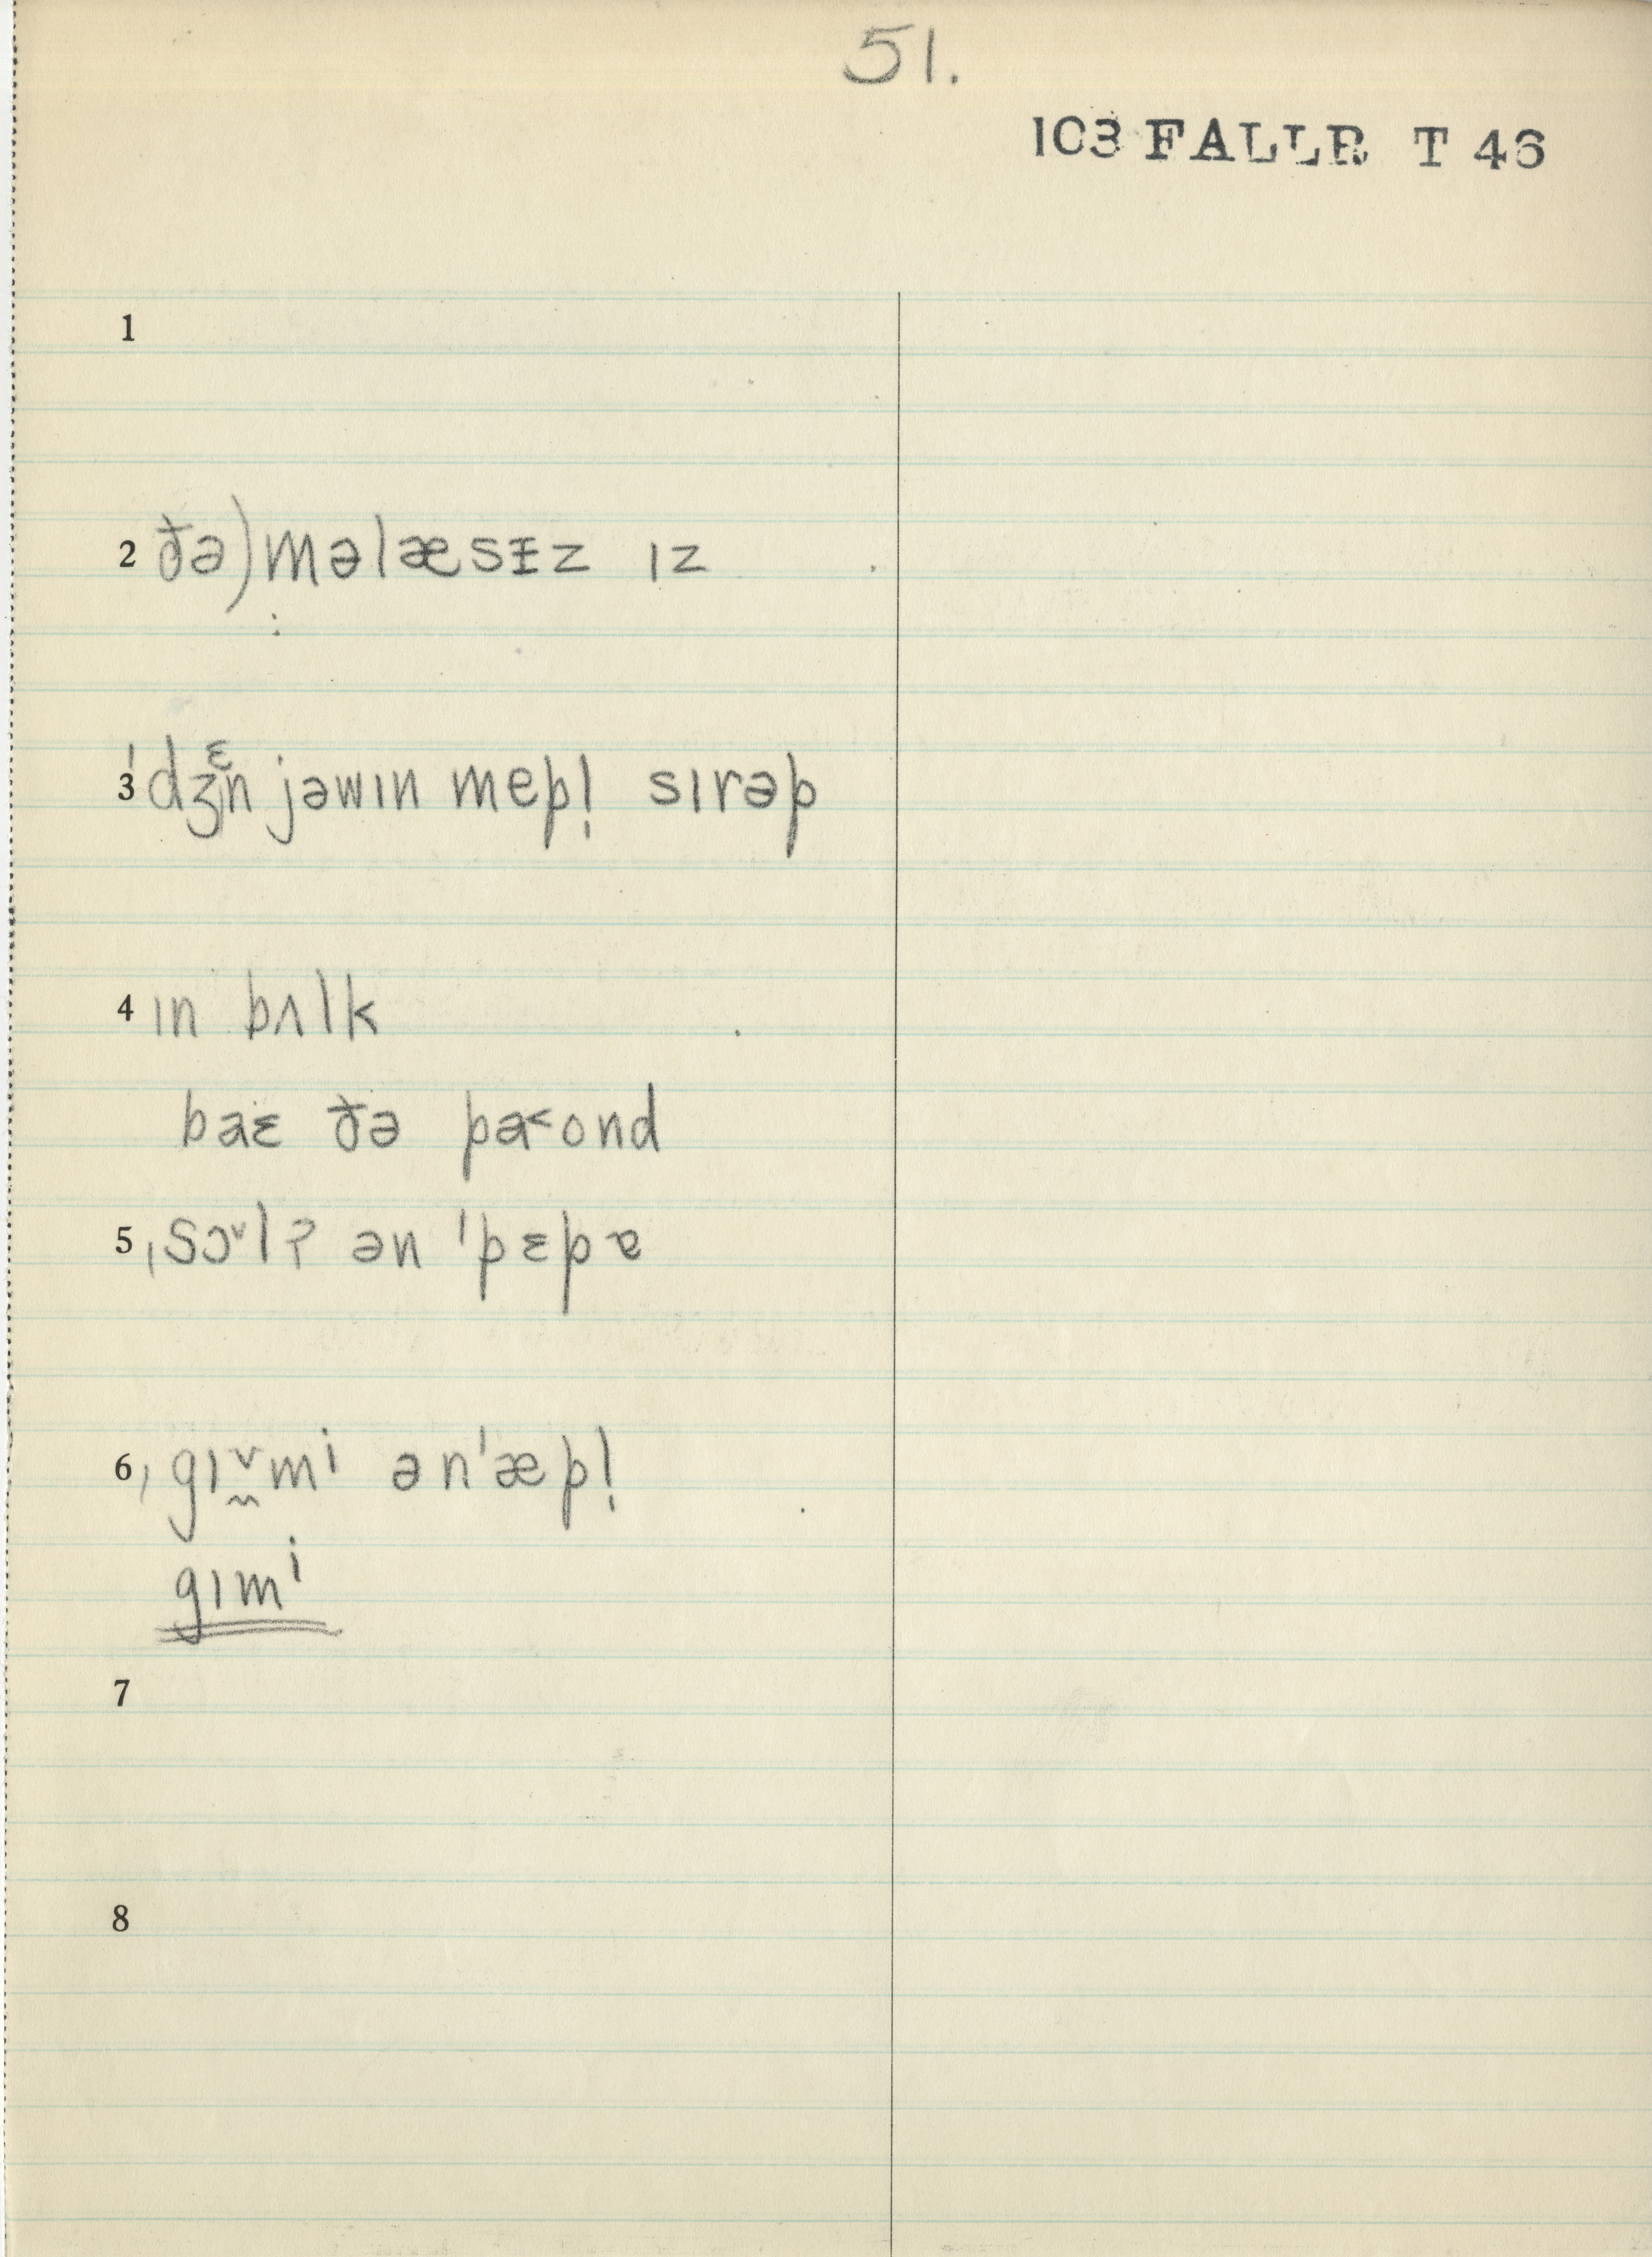 51.
103 FALLR T 46
1
2 ðə) məlæsɨz ɪz
3 ˈdʒɛn jəwɪn mepl̩ sɪrəp
4 ɪn bʌlk
baɛ ðə pa˂ond
5 ˌsɔ˅lʔ ən ˈpɛpɐ
6 ˌgɪ˅̰mi ənˈæpl̩
gɪmi
7
8